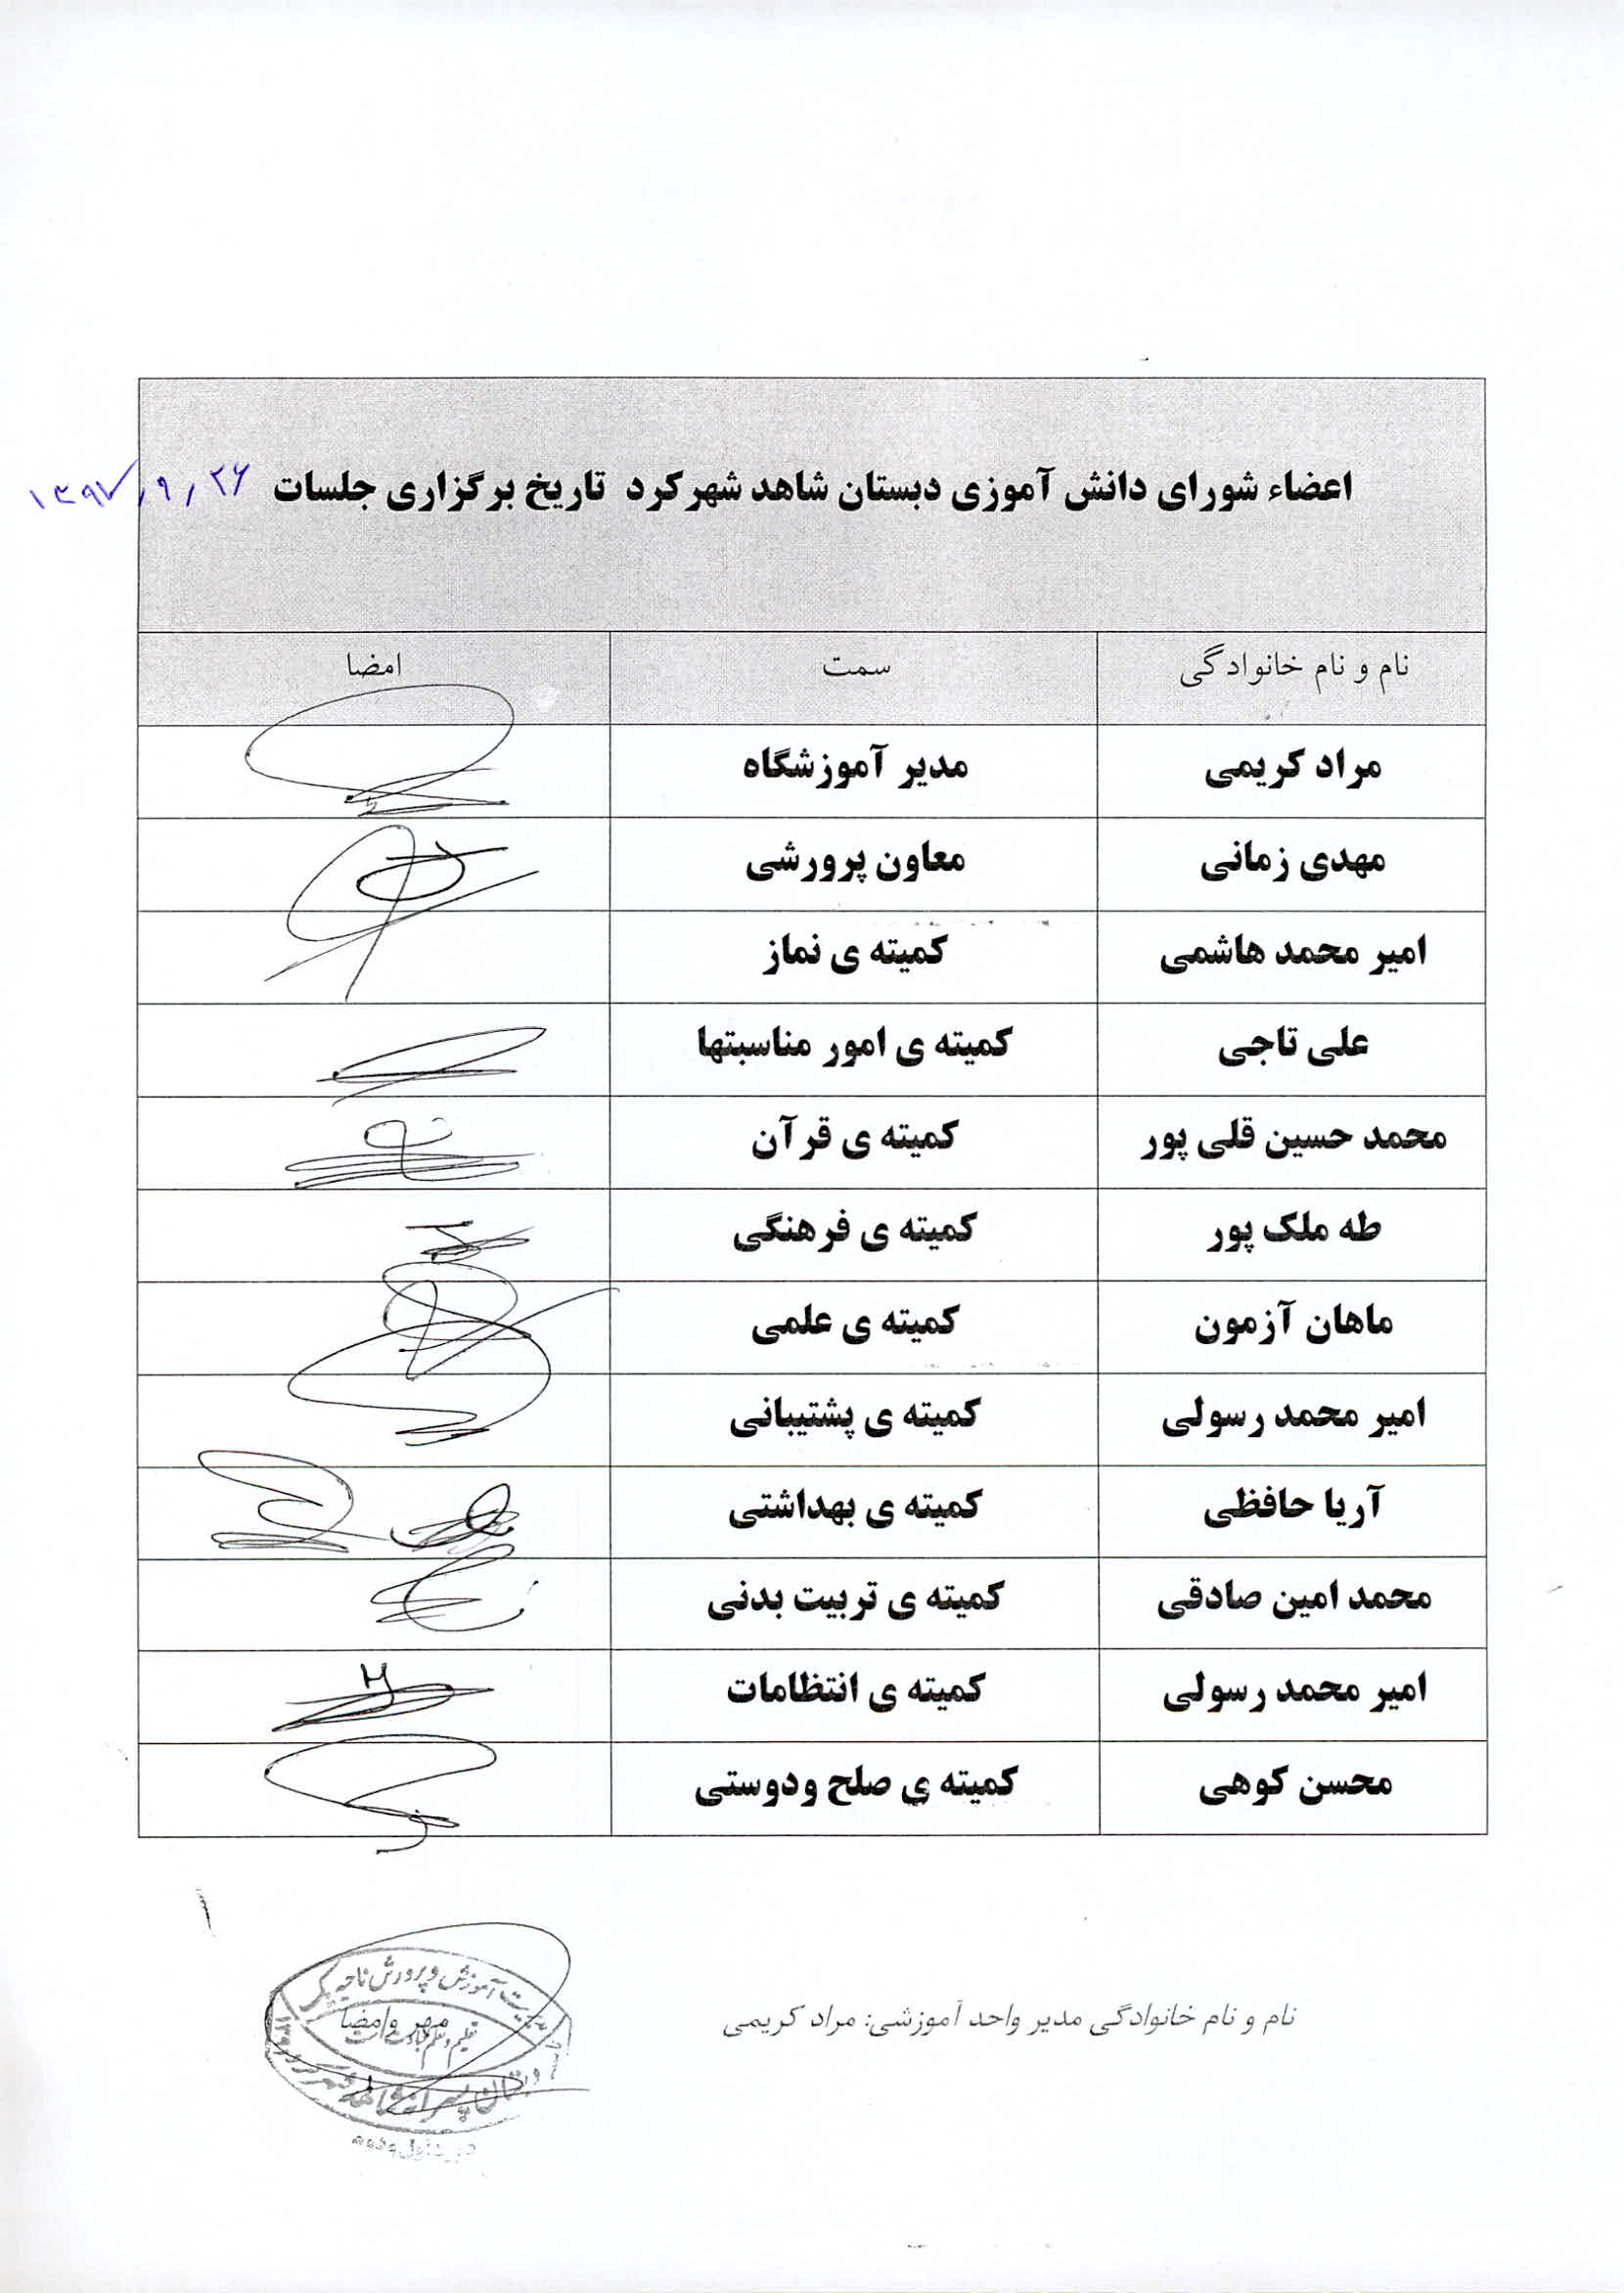 اعضاء شورای دانش آموزی دبستان شاهد شهرکرد تاریخ برگزاری جلسات ۱۳۹۷/۹/۲۶
نام و نام خانوادگی سمت امضا
مراد کریمی مدیر آموزشگاه
مهدی زمانی معاون پرورشی
امیر محمد هاشمی کمیته ی نماز
علی تاجی کمیته ی امور مناسبتها
محمد حسین قلی پور کمیته ی قرآن
طه ملک پور کمیته ی فرهنگی
ماهان آزمون کمیته ی علمی
امیر محمد رسولی کمیته ی پشتیبانی
آریا حافظی کمیته ی بهداشتی
محمد امین صادقی کمیته ی تربیت بدنی
امیر محمد رسولی کمیته ی انتظامات
محسن کوهی کمیته ی صلح ودوستی
نام و نام خانوادگی مدیر واحد آموزشی: مراد کریمی
مهر وامضا
مدیریت آموزش و پرورش ناحیه یک
تعلیم و تعلم عبادت است
دبستان پسرانه شاهد شهرکرد